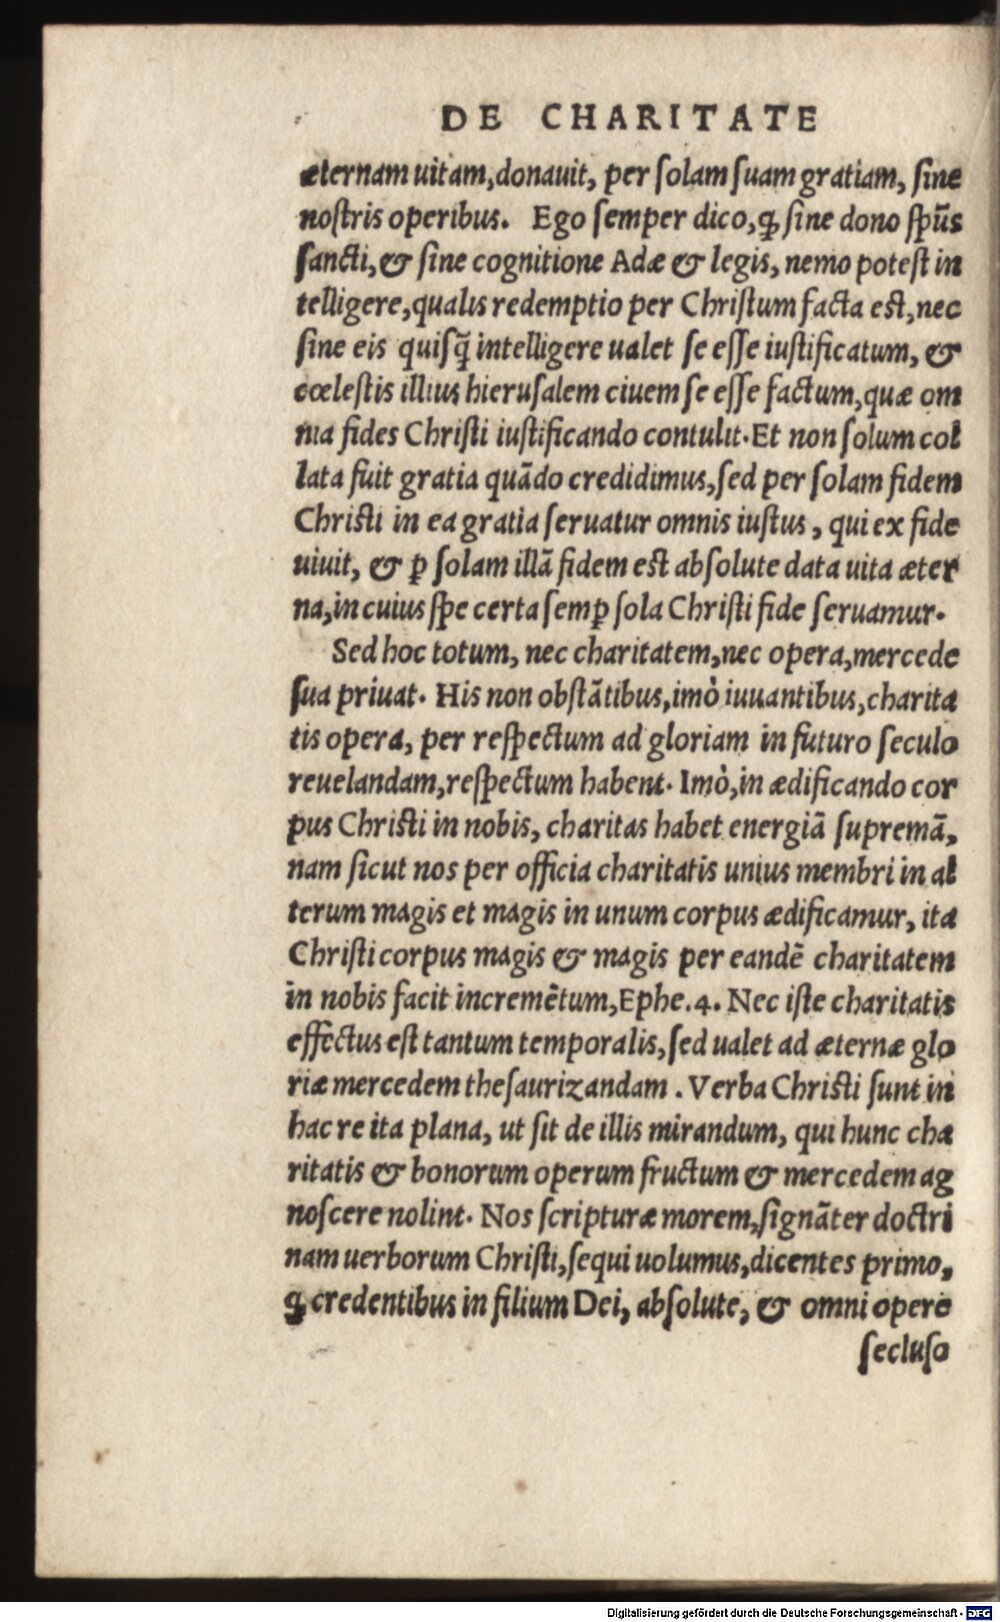 DE CHARITATE
æternam uitam, donauit, per ſolam ſuam gratiam, ſine
noſtris operibus. Ego ſemper dico, ꝙ ſine dono ſpũs
ſancti, & ſine cognitione Adæ & legis, nemo poteſt in
telligere, qualis redemptio per Chriſtum facta eſt, nec
ſine eis quiſq̃ intelligere ualet ſe eſſe iuſtificatum, &
cœleſtis illius hieruſalem ciuem ſe eſſe factum, quæ om
nia fides Chriſti iuſtificando contulit. Et non ſolum col
lata fuit gratia quãdo credidimus, ſed per ſolam fidem
Chriſti in ea gratia ſeruatur omnis iuſtus, qui ex fide
uiuit, & ꝑ ſolam illã fidem eſt abſolute data uita æter
na, in cuius ſpe certa ſemꝑ ſola Chriſti fide ſeruamur.
Sed hoc totum, nec charitatem, nec opera, mercede
ſua priuat. His non obſtãtibus, imò iuuantibus, charita
tis opera, per reſpectum ad gloriam in futuro ſeculo
reuelandam, reſpectum habent. Imò, in ædificando cor
pus Chriſti in nobis, charitas habet energiã ſupremã,
nam ſicut nos per officia charitatis unius membri in al
terum magis et magis in unum corpus ædificamur, ita
Chriſti corpus magis & magis per eandẽ charitatem
in nobis facit incremẽtum, Ephe. 4. Nec iſte charitatis
effectus eſt tantum temporalis, ſed ualet ad æternæ glo
riæ mercedem theſaurizandam. Verba Chriſti ſunt in
hac re ita plana, ut ſit de illis mirandum, qui hunc cha
ritatis & bonorum operum fructum & mercedem ag
noſcere nolint. Nos ſcripturæ morem, ſignãter doctri
nam uerborum Chriſti, ſequi uolumus, dicentes primo,
ꝙ credentibus in filium Dei, abſolute, & omni opere
ſecluſo
Digitalisierung gefördert durch die Deutsche Forschungsgemeinschaft - DFG